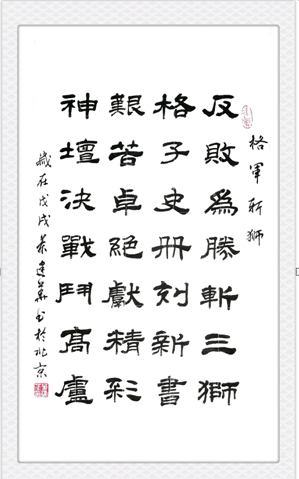 格軍斬獅
反敗爲勝斬三獅
格子史冊刻新書
艱苦卓絕獻精彩
神壇決戰鬥高盧
歲在戊戌建书於北京